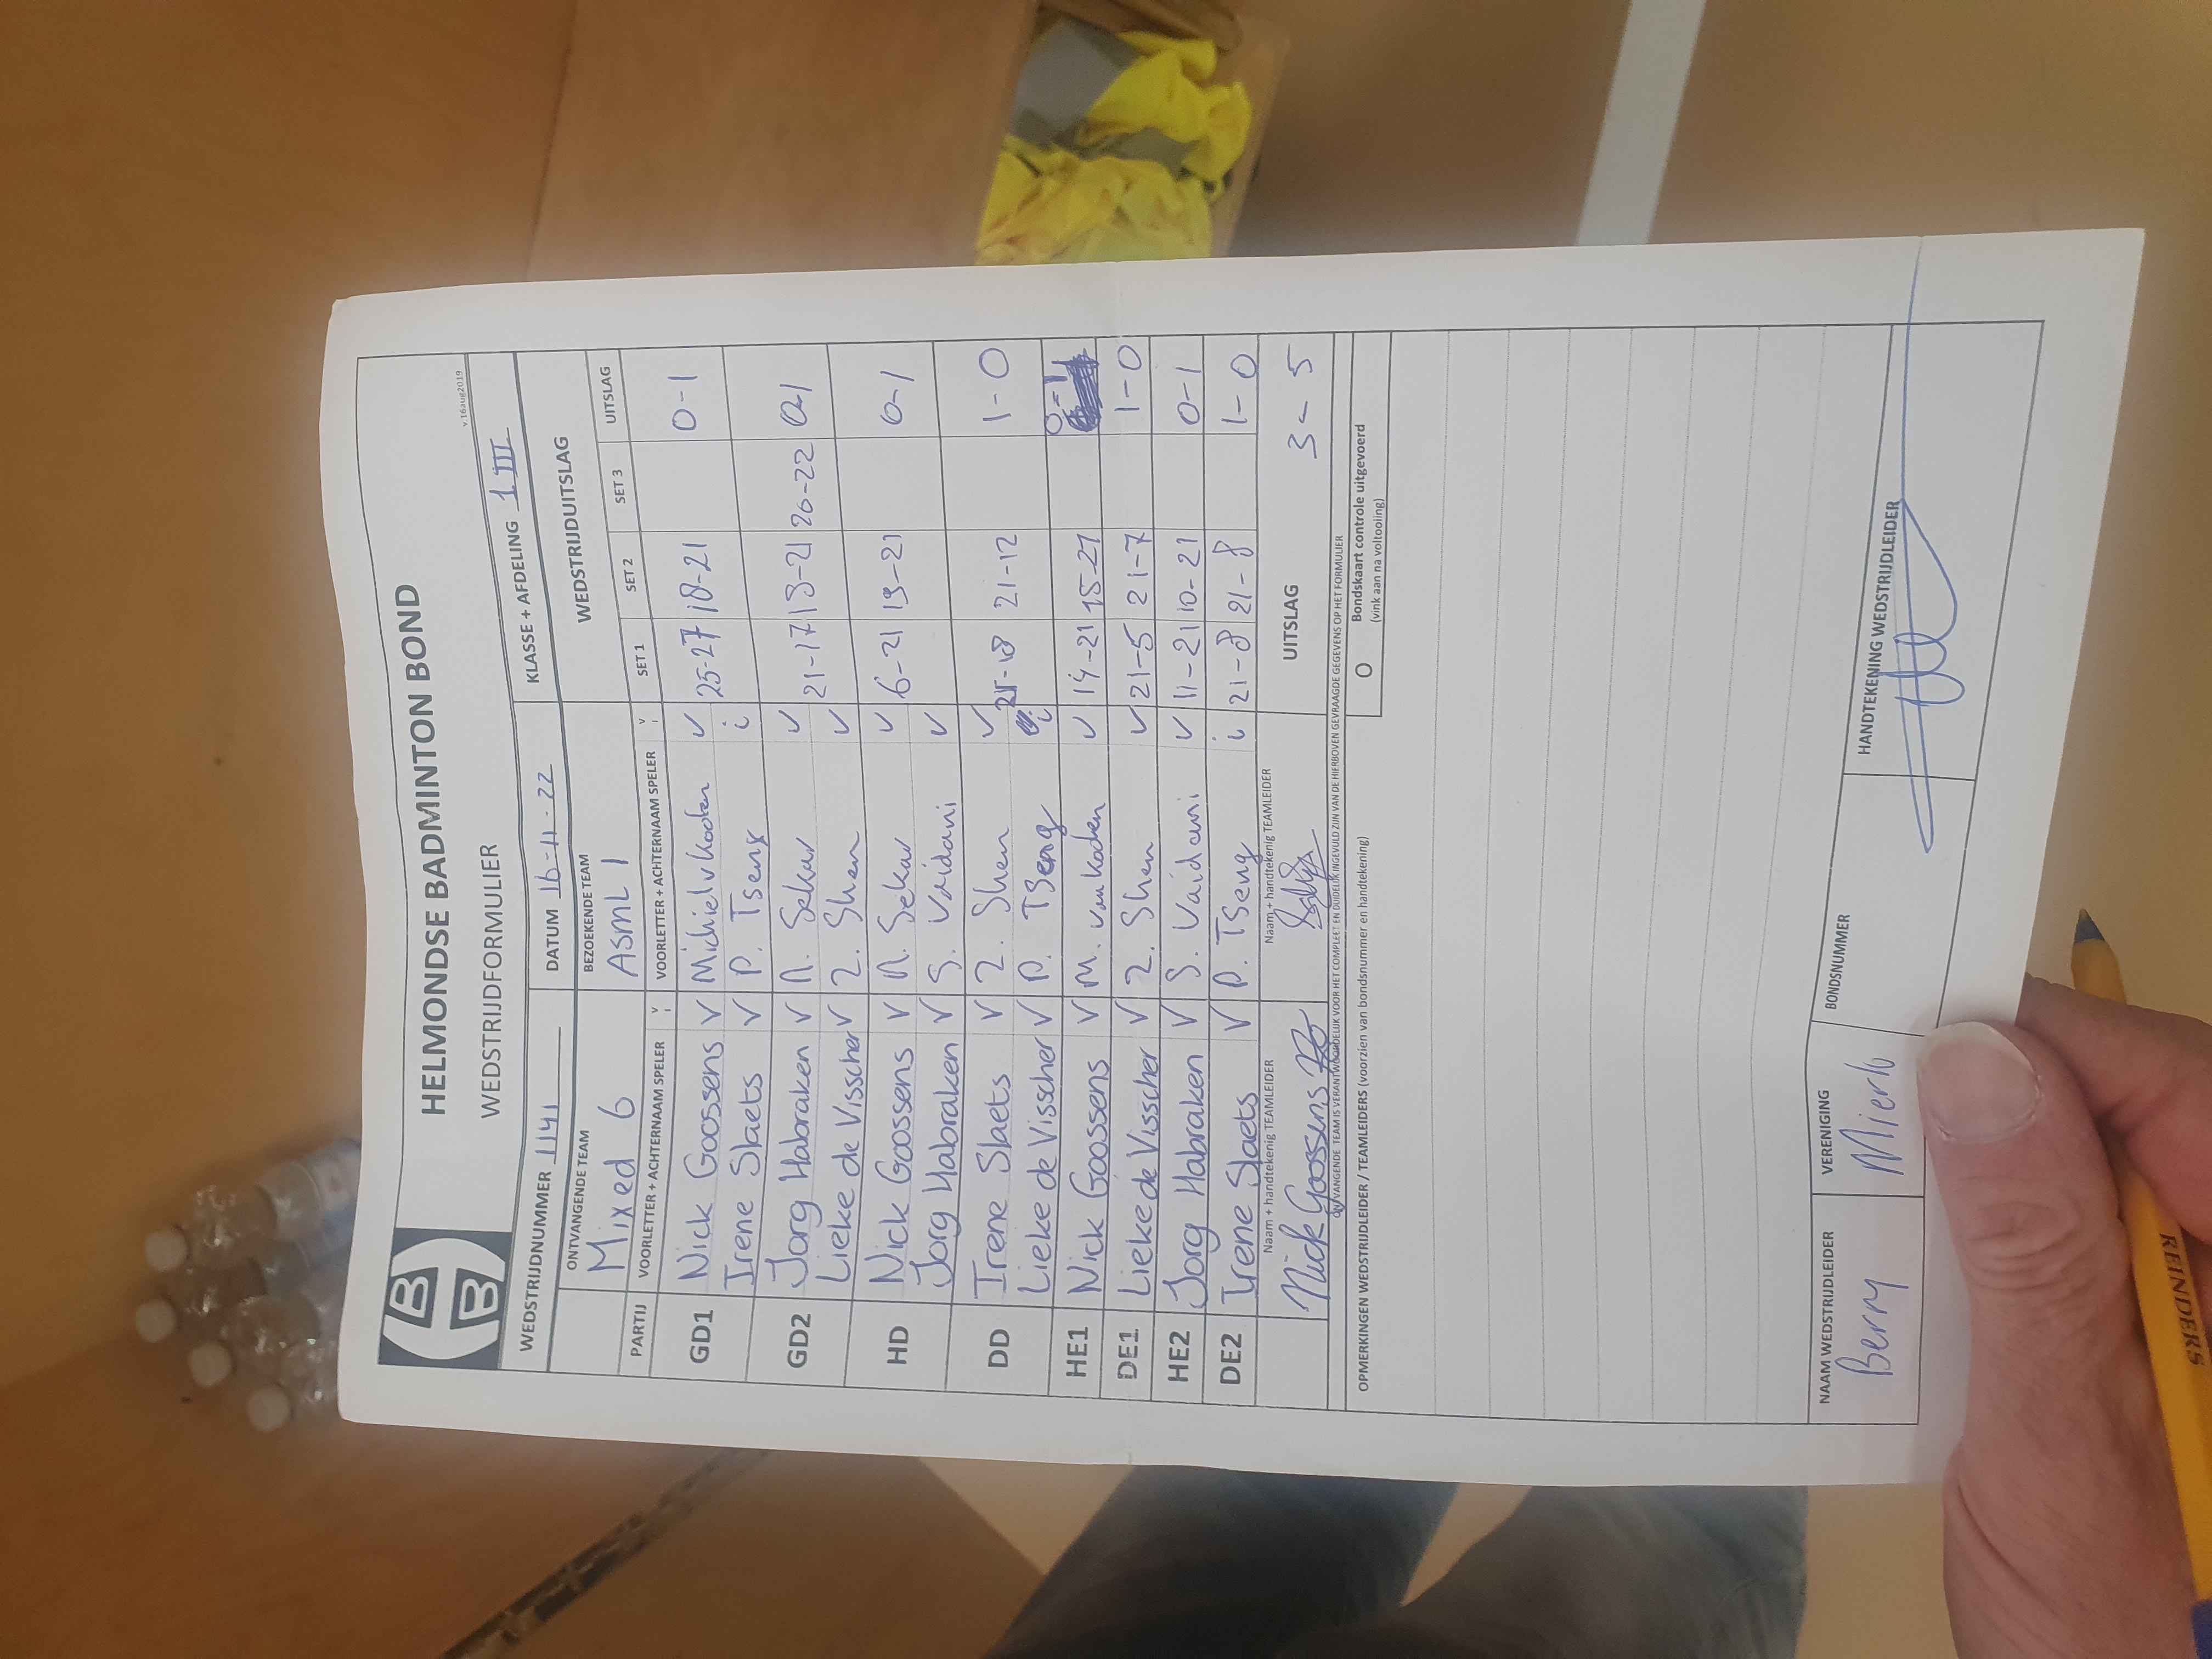 HELMONDSE BADMINTON BOND
WEDSTRIJDFORMULIER
v.16aug2019
WEDSTRIJDNUMMER 1141 DATUM 16-11-22 KLASSE + AFDELING 1 III
ONTVANGENDE TEAM BEZOEKENDE TEAM WEDSTRIJDUITSLAG
Mixed 6 Asml 1
PARTIJ VOORLETTER + ACHTERNAAM SPELER V I VOORLETTER + ACHTERNAAM SPELER V I SET 1 SET 2 SET 3 UITSLAG
GD1 Nick Goossens V Michiel v Kooten V 25-27 18-21 0-1
Irene Slaets V P. Tseng i
GD2 Jorg Habraken V A. Sekar V 21-17 13-21 20-22 0-1
Lieke de Visscher V Z. Shen V
HD Nick Goossens V A. Sekar V 6-21 19-21 0-1
Jorg Habraken V S. Vaidani V
DD Irene Slaets V Z. Shen V 21-18 21-12 1-0
Lieke de Visscher V P. Tseng i
HE1 Nick Goossens V M. van Kooten V 14-21 15-21 0-1
DE1 Lieke de Visscher V Z. Shen V 21-5 21-7 1-0
HE2 Jorg Habraken V S. Vaidani V 11-21 10-21 0-1
DE2 Irene Slaets V P. Tseng i 21-8 21-8 1-0
Naam + handtekenig TEAMLEIDER Naam + handtekenig TEAMLEIDER UITSLAG 3-5
Nick Goossens
ONTVANGENDE TEAM IS VERANTWOORDELIJK VOOR HET COMPLEET EN DUIDELIJK INGEVULD ZIJN VAN DE HIERBOVEN GEVRAAGDE GEGEVENS OP HET FORMULIER
OPMERKINGEN WEDSTRIJDLEIDER / TEAMLEIDERS (voorzien van bondsnummer en handtekening) O Bondskaart controle uitgevoerd
(vink aan na voltooiing)
NAAM WEDSTRIJDLEIDER VERENIGING BONDSNUMMER HANDTEKENING WEDSTRIJDLEIDER
Berry Mierlo
REINDERS